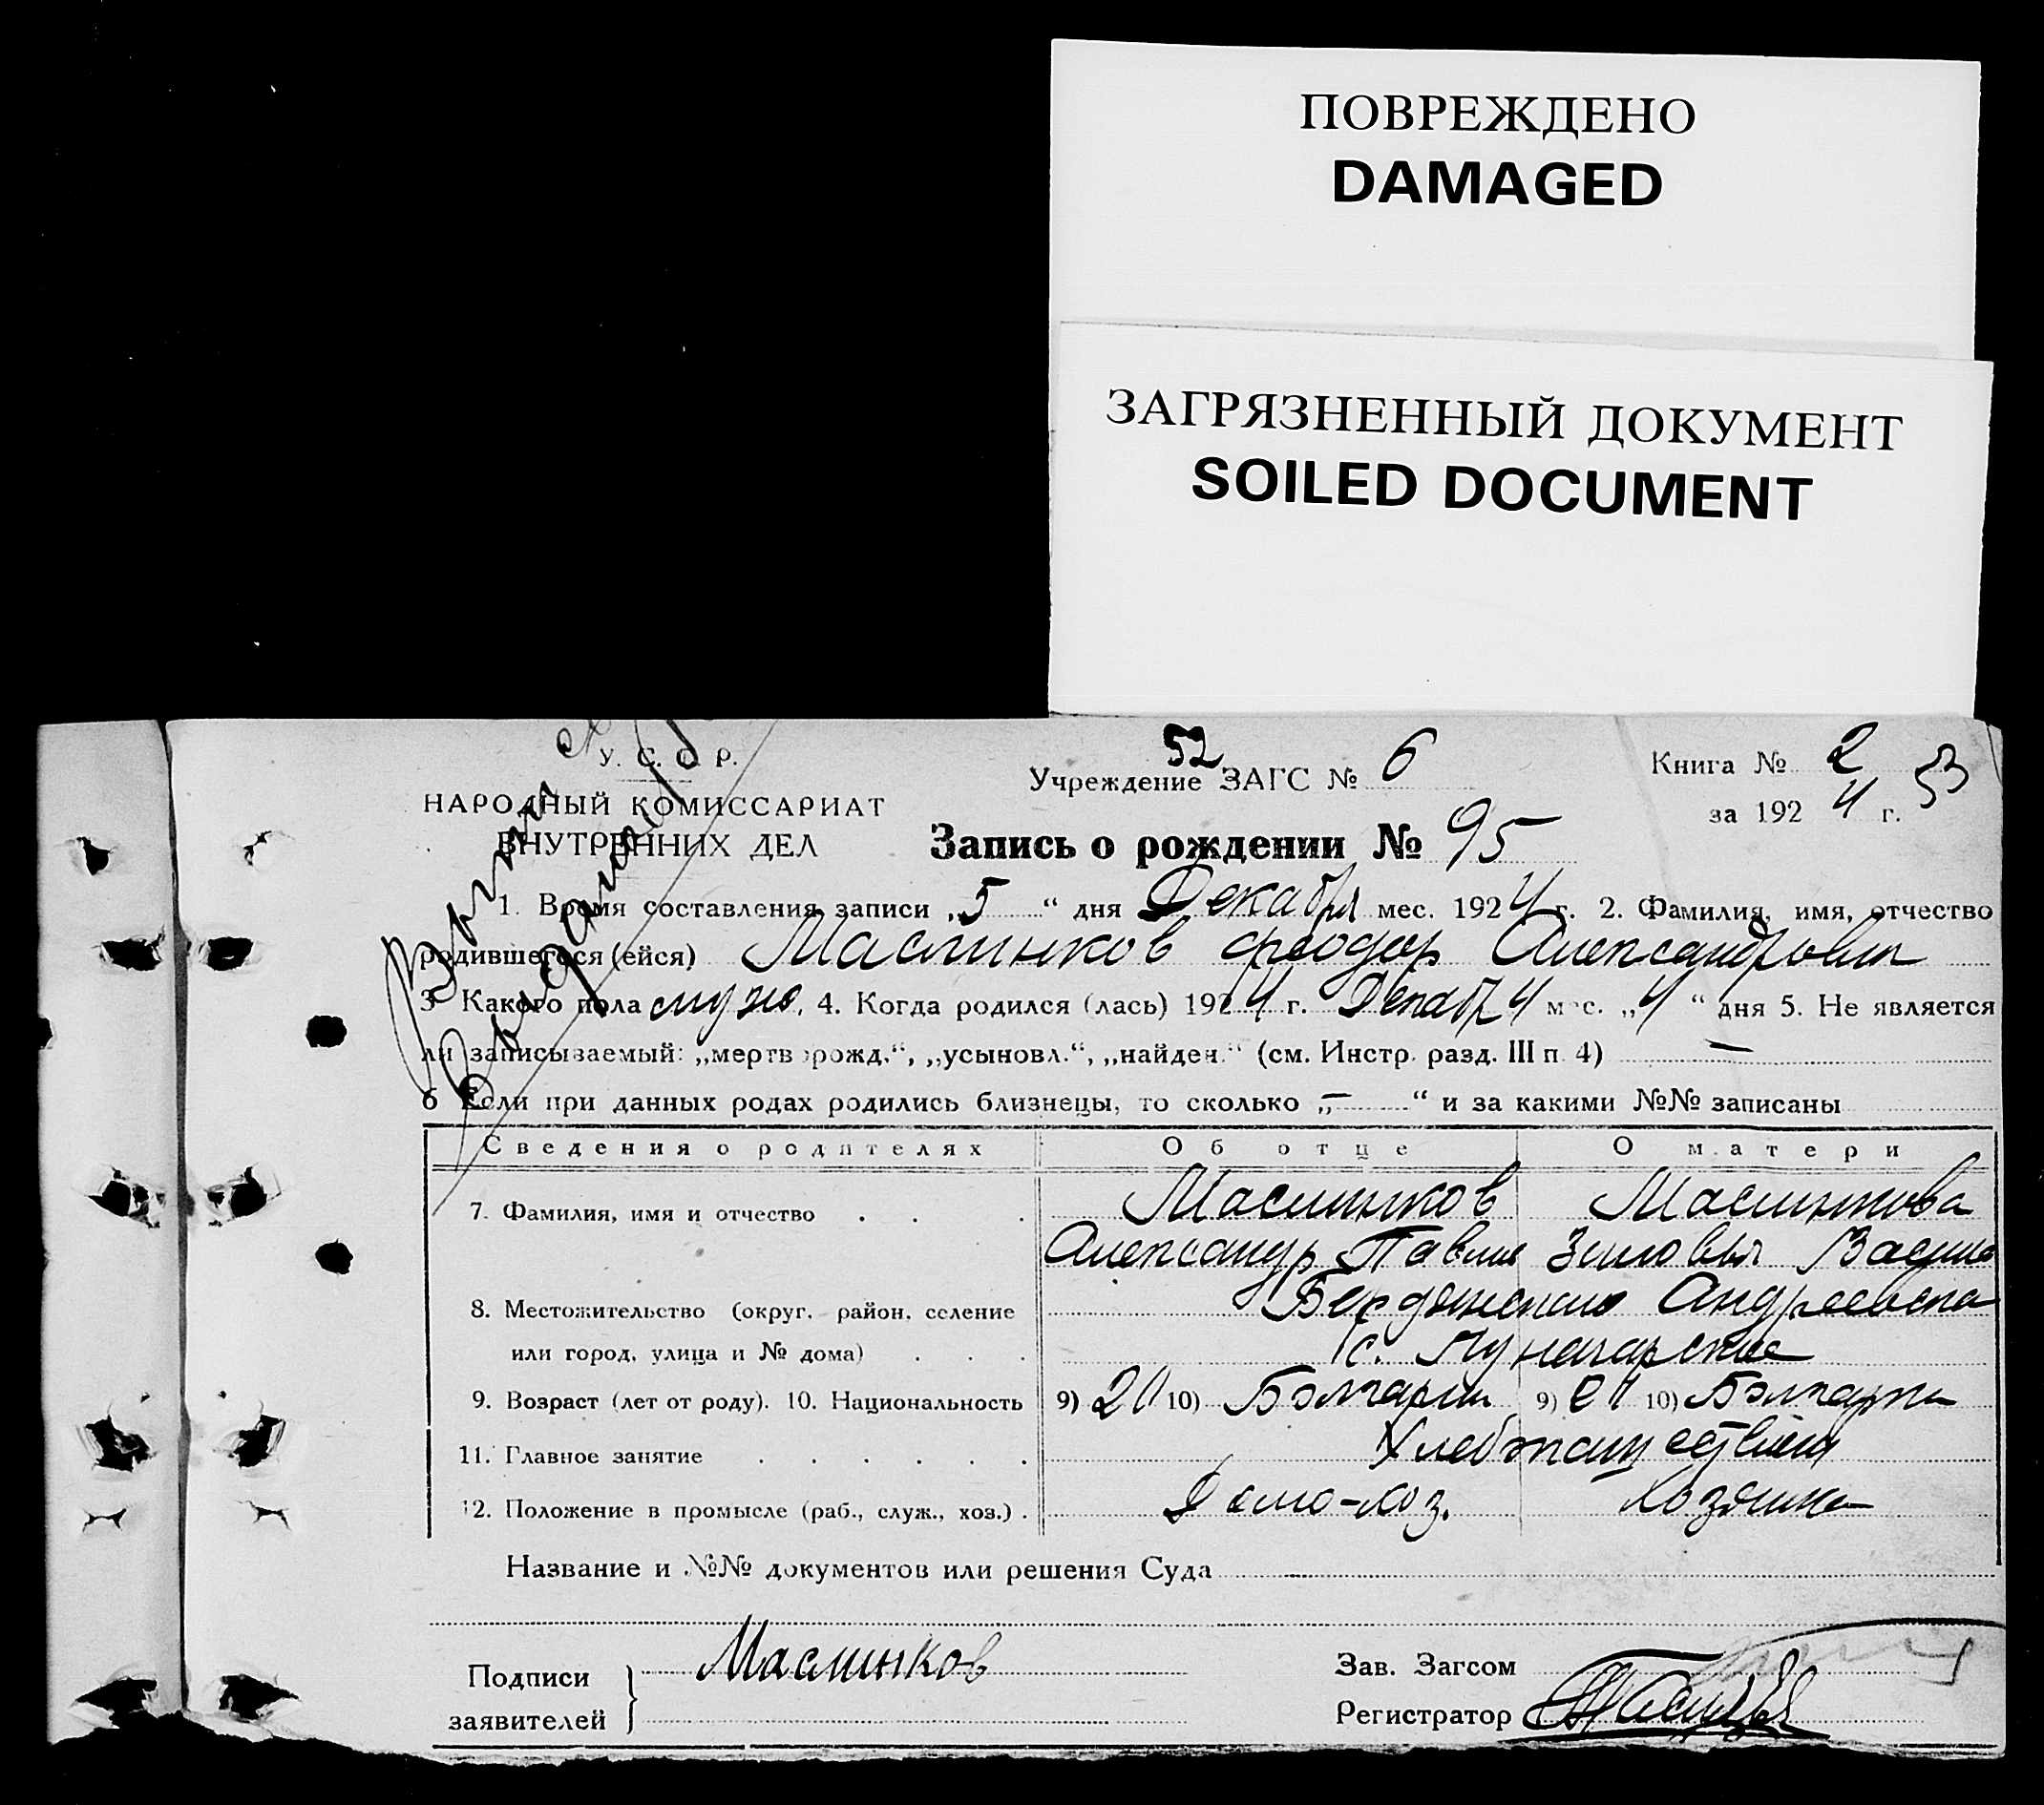 ПОВРЕЖДЕНО
DAMAGED
ЗАГРЯЗНЕННЫЙ ДОКУМЕНТ
SOILED DOCUMENT
У. С. С. Р.
НАРОДНЫЙ КОМИССАРИАТ
ВНУТРЕННИХ ДЕЛ
52
Учреждение ЗАГС № 6
Книга № 2
53
за 1924 г.
Запись о рождении № 95
1. Время составления записи „5“ дня Декабря мес. 1924 г. 2. Фамилия, имя, отчество
родившегося (ейся) Маслинков Феодор Александрович
3 Какого пола муж. 4. Когда родился (лась) 1924 г. Декабр мес. „4“ дня 5. Не является
ли записываемый: „мертворожд.“, „усыновл.“, „найден.“ (см. Инстр. разд. III п. 4) —
6 Если при данных родах родились близнецы, то сколько „—“ и за какими №№ записаны
Сведения о родителях Об отце О матери
7. Фамилия, имя и отчество Маслинков Маслинкова
Александр Павлов Зиновья
8. Местожительство (округ, район, селение Андреевска
или город, улица и № дома) с. Луначарское
9. Возраст (лет от роду). 10. Национальность 9) 10) Болгарин 9) 10) Болгарка
11. Главное занятие
12. Положение в промысле (раб., служ., хоз.) Домо-хоз. Хозяйка
Название и №№ документов или решения Суда —
Подписи
заявителей
Маслинков
Зав. Загсом
Регистратор